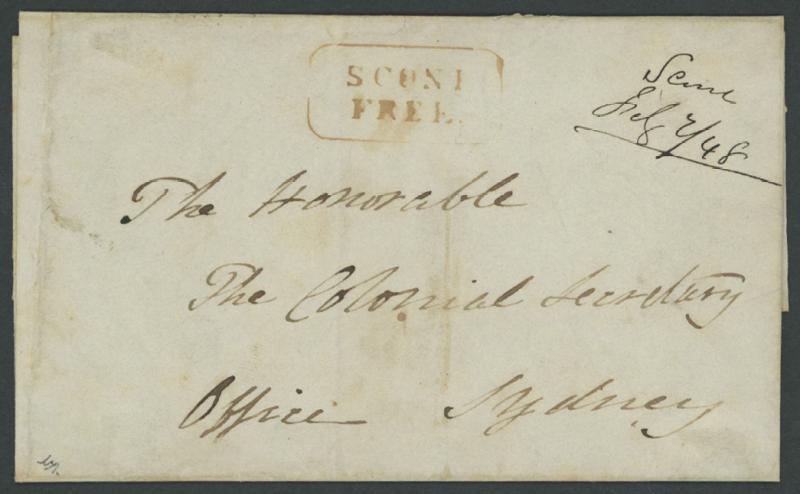 SCONE
FREE.
Scone
Feb 7/48
The Honorable
The Colonial Secretary
Office Sydney